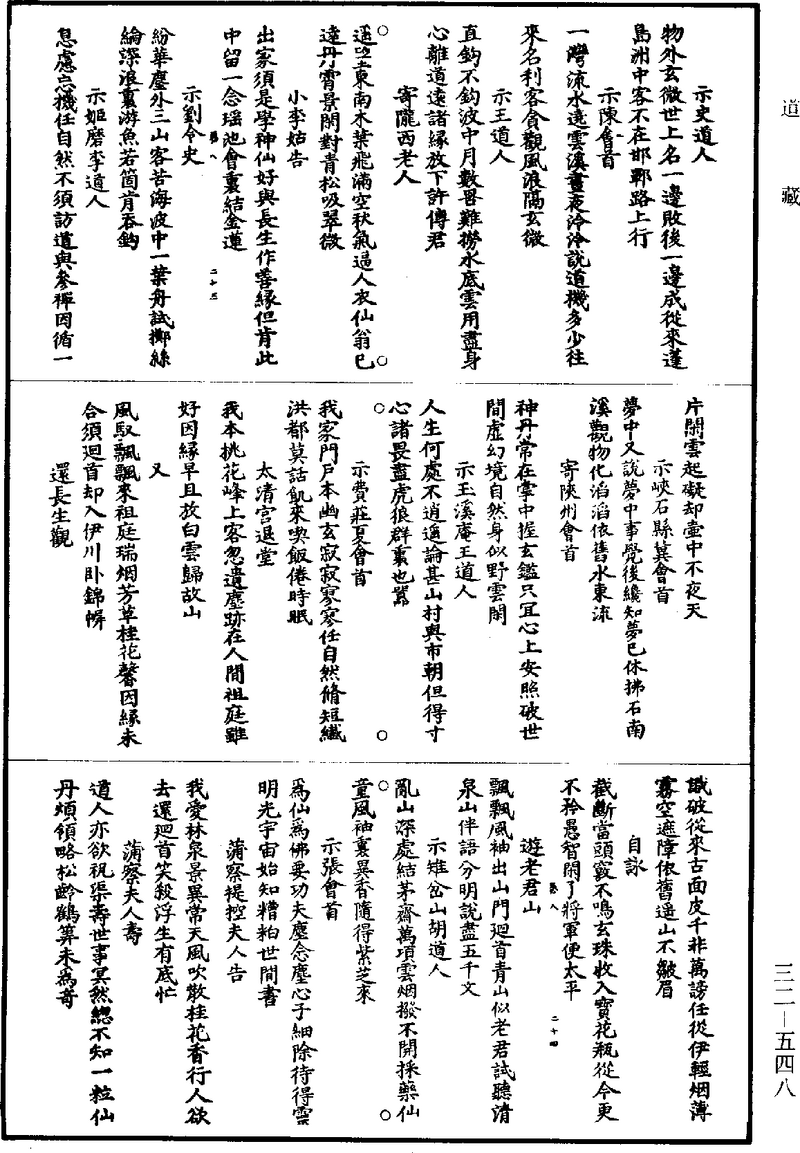 道藏
三二—五四八
示史道人
物外玄微世上名一邊敗後一邊成從來蓬
島洲中客不在邯鄲路上行
示陳會首
一灣流水遶雲溪晝夜泠泠說道機多少往
來名利客貪觀風浪隔玄微
示王道人
直鈎不釣波中月數罟難撈水底雲用盡身
心離道遠諸緣放下許傳君
寄隴西老人
遥望東南木葉飛滿空秋氣逼人衣仙翁已
達丹霄景閑對青松吸翠微
小李姑告
出家須是學神仙好與長生作善緣但肯此
中留一念瑶池會裏結金蓮
卷八
二十三
示劉令史
紛華塵外三山客苦海波中一葉舟試擲絲
綸深浪裏游魚若箇肯吞鈎
示姬磨李道人
息慮忘機任自然不須訪道與參禪因循一
片閑雲起礙却壺中不夜天
示峽石縣冀會首
夢中又說夢中事覺後纔知夢已休拂石南
溪觀物化滔滔依舊水東流
寄陝州會首
神丹常在掌中握玄鑑只宜心上安照破世
間虛幻境自然身似野雲閑
示玉溪庵王道人
人生何處不逍遥論甚山村與市朝但得寸
心諸畏盡虎狼群裏也囂
示費莊夏會首
我家門戶本幽玄寂寂寥寥任自然脩短纖
洪都莫話飢來喫飯倦時眠
太清宮退堂
我本桃花峰上客忽遺塵跡在人間祖庭雖
好因緣早且放白雲歸故山
又
風馭飄飄來祖庭瑞烟芳草桂花馨因緣未
合須迴首却入伊川卧錦幈
還長生觀
識破從來古面皮千非萬謗任從伊輕烟薄
霧空遮障依舊遥山不皺眉
自詠
截斷當頭竅不鳴玄珠收入寶花瓶從今更
不矜愚智閑了將軍便太平
卷八
二十四
遊老君山
飄飄風袖出山門迴首青山似老君試聽清
泉山伴語分明說盡五千文
示雉岔山胡道人
亂山深處結茅齋萬頃雲烟撥不開採藥仙
童風袖裏異香隨得紫芝來
示張會首
爲仙爲佛要功夫塵念塵心子細除待得靈
明光宇宙始知糟粕世間書
蒲察提控夫人告
我愛林泉景異常天風吹散桂花香行人欲
去還迴首笑殺浮生有底忙
蒲察夫人壽
道人亦欲祝渠壽世事冥然緫不知一粒仙
丹煩領略松齡鶴筭未爲奇